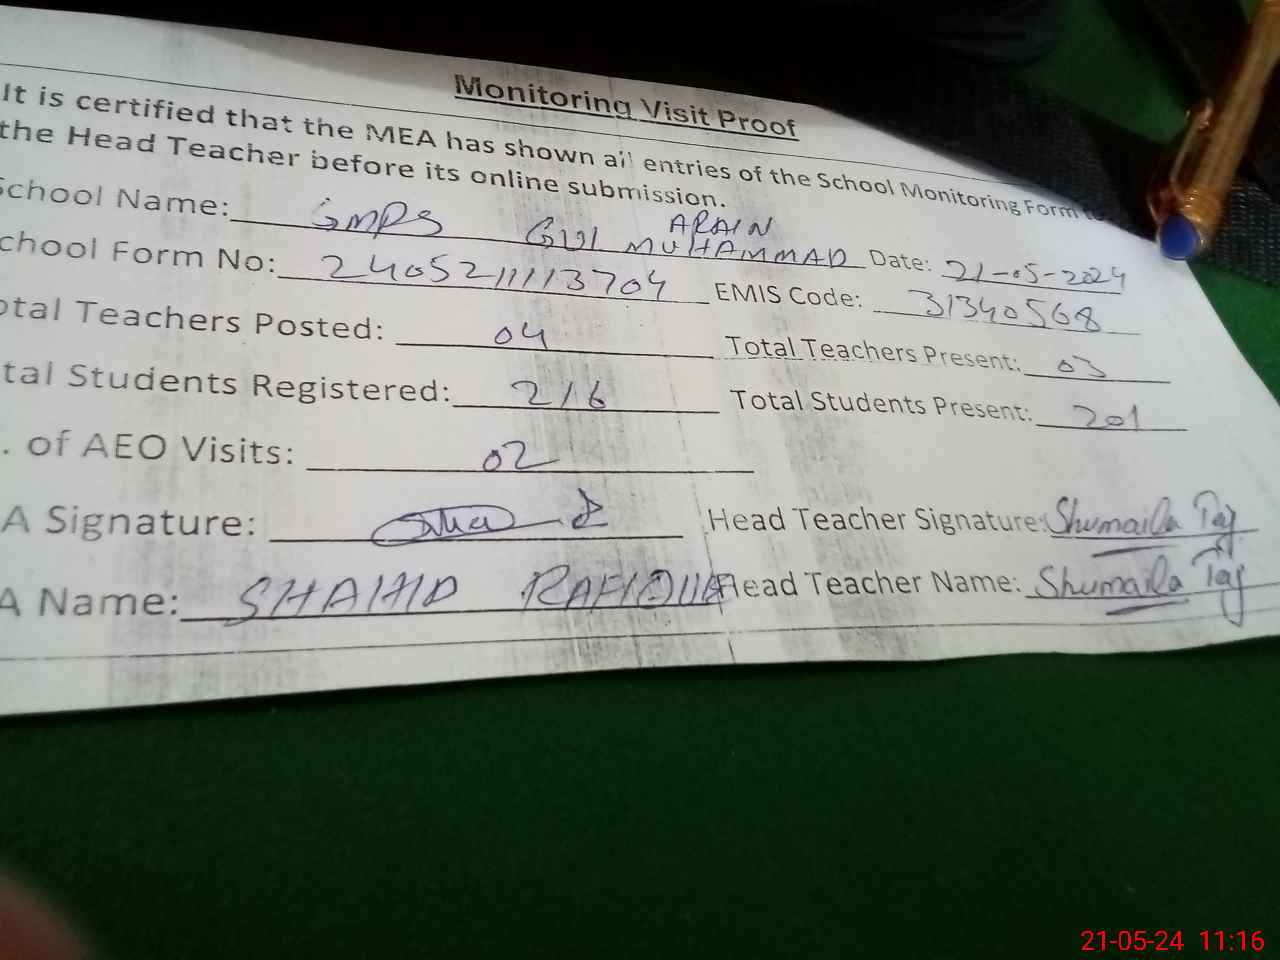 Monitoring Visit Proof
It is certified that the MEA has shown all entries of the School Monitoring Form to
the Head Teacher before its online submission.
School Name: GMPS GUL MUHAMMAD ARAIN Date: 21-05-2024
School Form No: 24052111113704 EMIS Code: 31340568
otal Teachers Posted: 04 Total Teachers Present: 03
tal Students Registered: 216 Total Students Present: 201
. of AEO Visits: 02
A Signature: Head Teacher Signature: Shumaila Taj
A Name: SHAHID RAFIQUE Head Teacher Name: Shumaila Taj
21-05-24 11:16